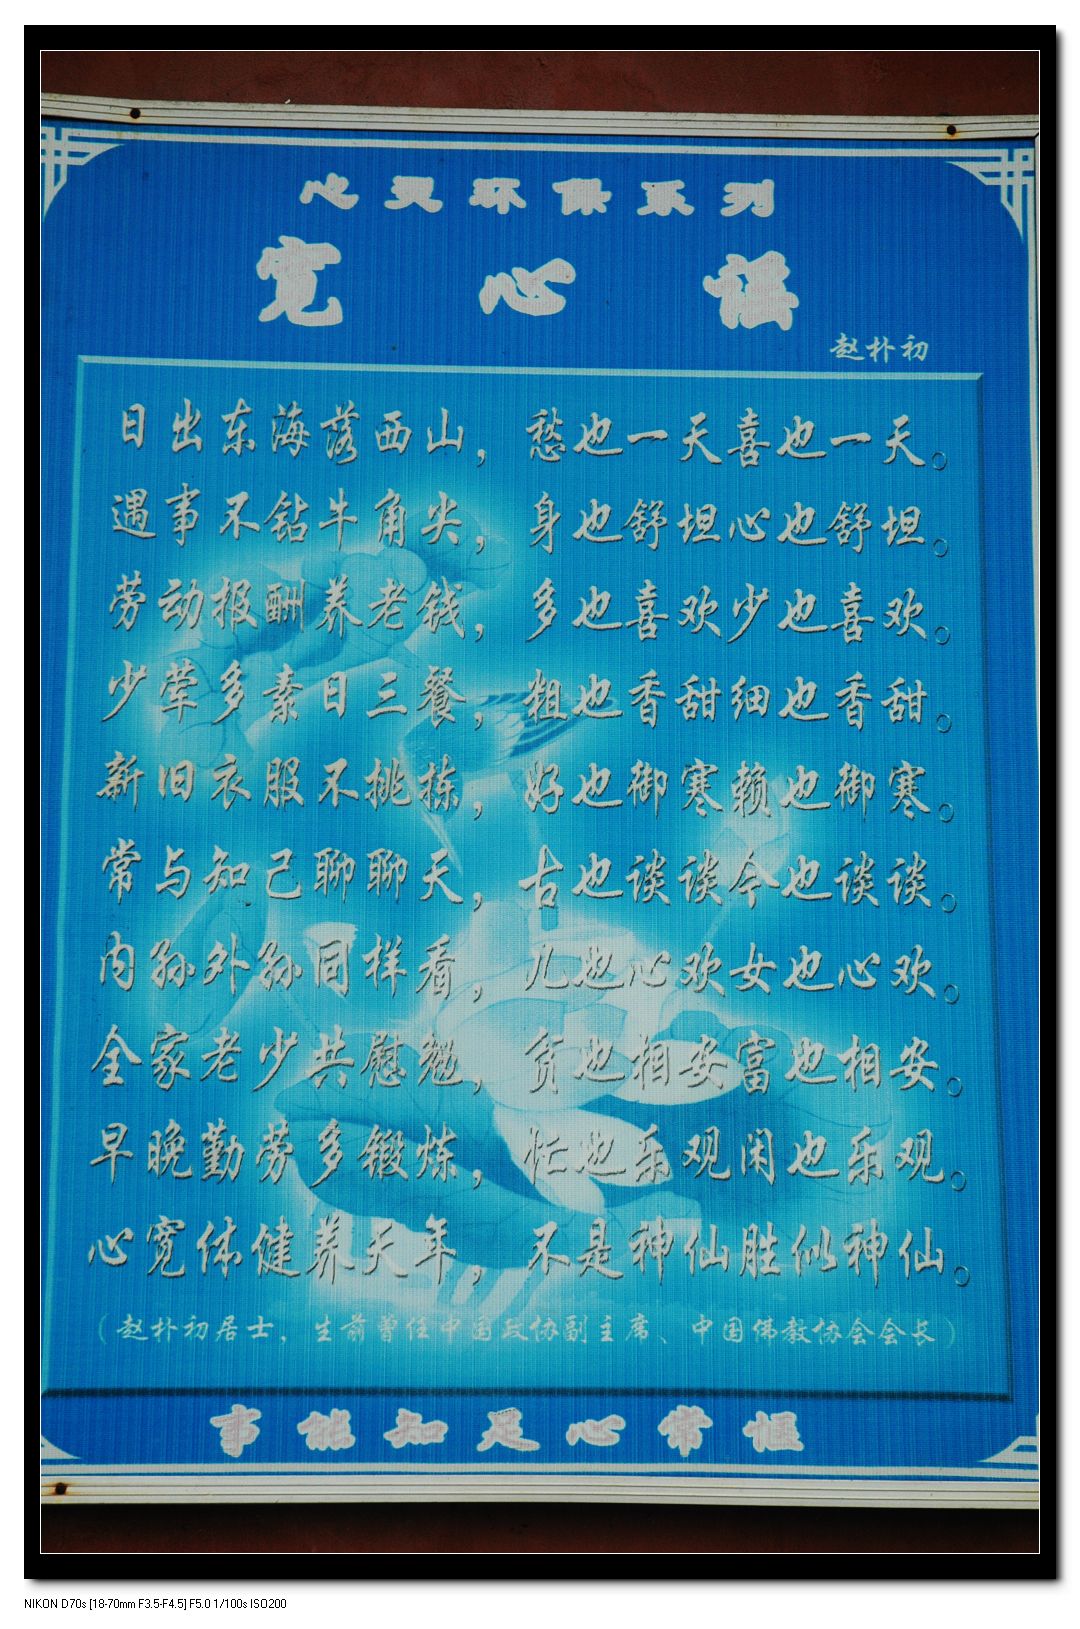 心灵环保系列
宽心谣
赵朴初
日出东海落西山，愁也一天喜也一天。
遇事不钻牛角尖，身也舒坦心也舒坦。
劳动报酬养老钱，多也喜欢少也喜欢。
少荤多素日三餐，粗也香甜细也香甜。
新旧衣服不挑拣，好也御寒赖也御寒。
常与知己聊聊天，古也谈谈今也谈谈。
内孙外孙同样看，儿也心欢女也心欢。
全家老少共慰勉，贫也相安富也相安。
早晚勤劳多锻炼，忙也乐观闲也乐观。
心宽体健养天年，不是神仙胜似神仙。
（赵朴初居士，生前曾任中国政协副主席、中国佛教协会会长）
事能知足心常惬
NIKON D70s [18-70mm F3.5-F4.5] F5.0 1/100s ISO200